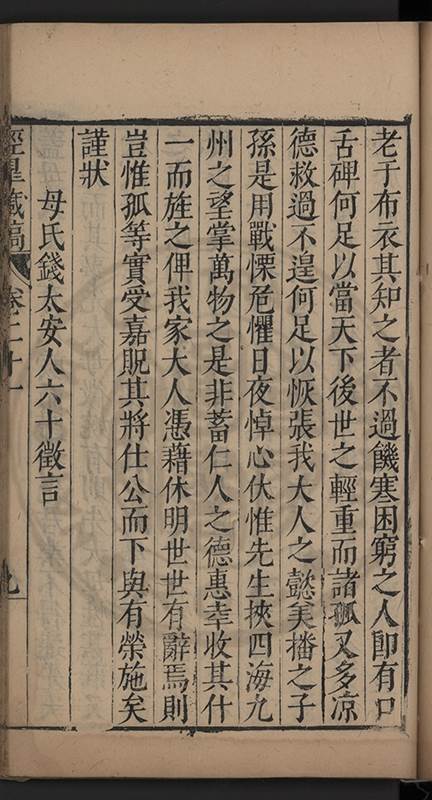 老于布衣其知之者不過饑寒困窮之人即有口
舌碑何足以當天下後世之輕重而諸孤又多凉
德救過不遑何足以恢張我大人之懿美播之子
孫是用戰慄危懼日夜悼心伏惟先生挾四海九
州之望掌萬物之是非蓄仁人之德惠幸收其什
一而旌之俾我家大人憑藉休明世世有辭焉則
豈惟孤等實受嘉貺其將仕公而下與有榮施矣
謹狀
母氏錢太安人六十徵言
卷二十一
九